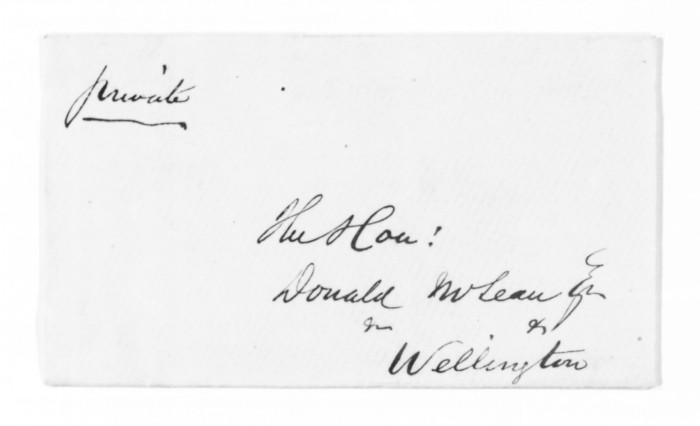 private
The Hon:
Donald McLean Esq
Wellington